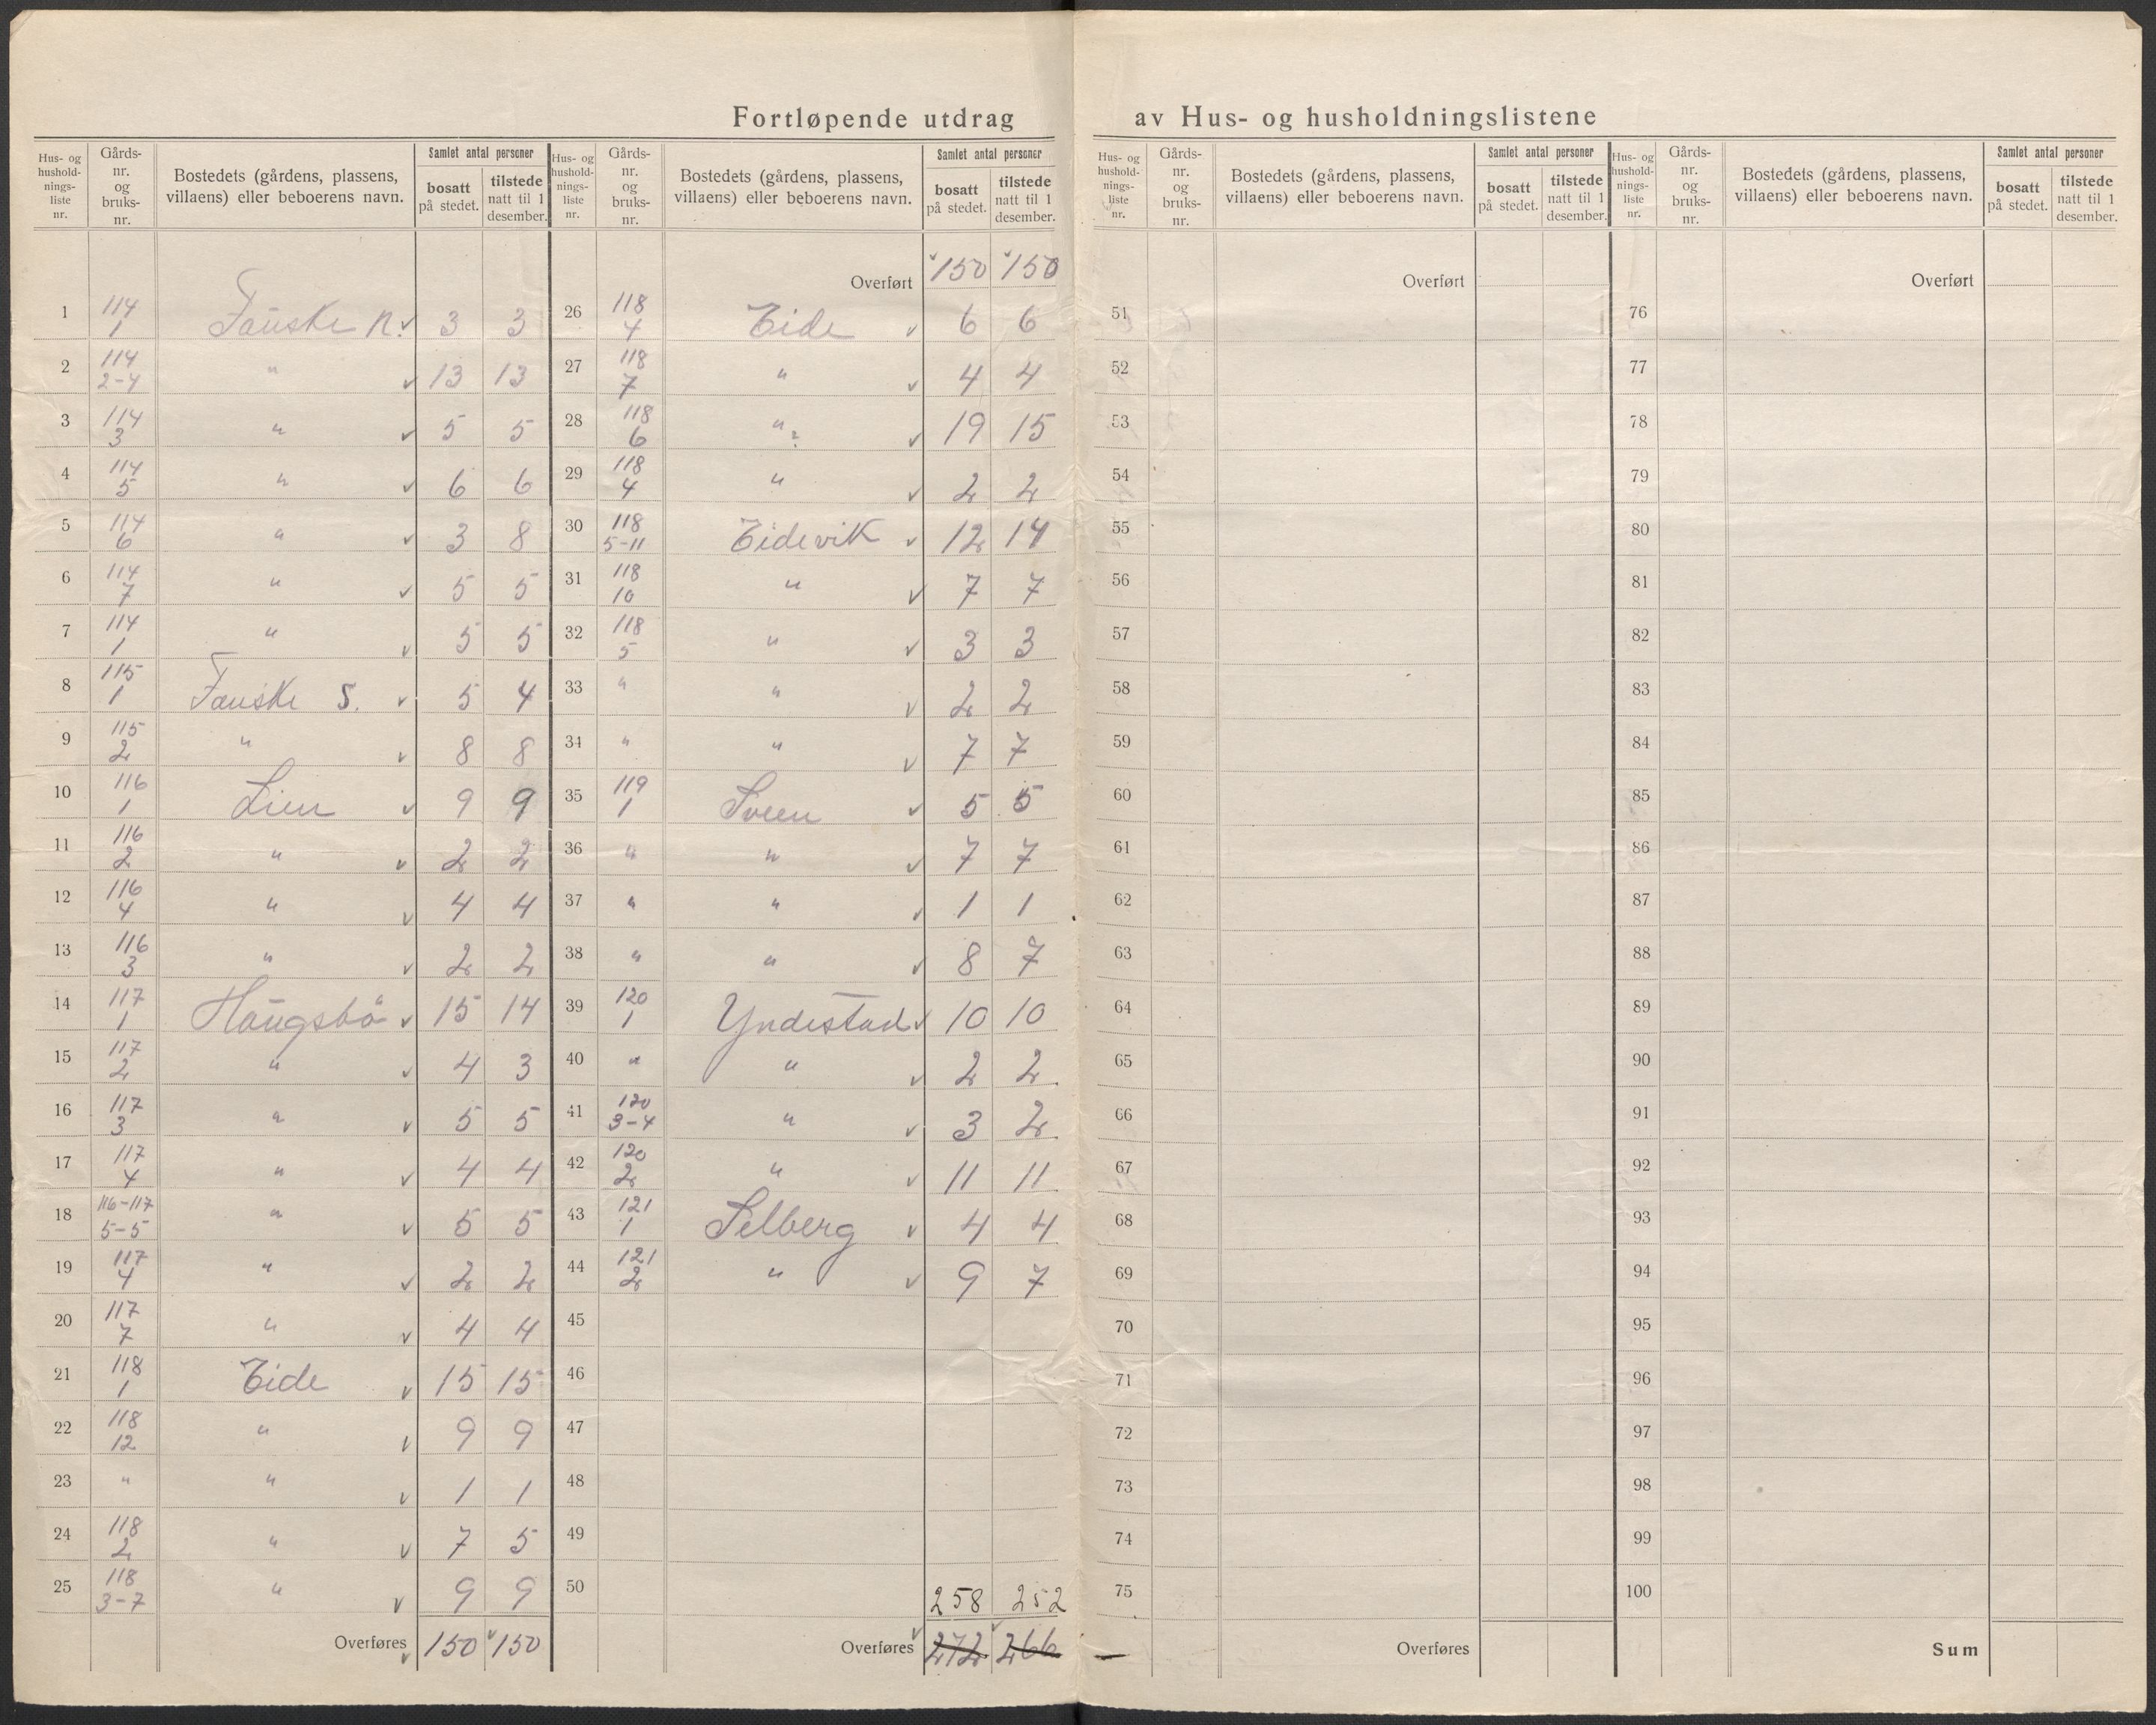 Fortløpende utdrag av Hus- og husholdningslistene
Hus- og hushold- nings- liste nr. | Gårds- nr. og bruks- nr. | Bostedets (gårdens, plassens, villaens) eller beboerens navn. | Samlet antal personer | bosatt på stedet. | tilstede natt til 1 desember.
1 114/1 Fauske N. v 3 3
2 114/2-4 " v 13 13
3 114/3 " v 5 5
4 114/5 " v 6 6
5 114/6 " v 3 8
6 114/7 " v 5 5
7 114/1 " v 5 5
8 115/1 Fauske S. v 5 4
9 115/2 " v 8 8
10 116/1 Lien v 9 9
11 116/2 " v 2 2
12 116/4 " v 4 4
13 116/3 " v 2 2
14 117/1 Haugsbö v 15 14
15 117/2 " v 4 3
16 117/3 " v 5 5
17 117/4 " v 4 4
18 116-117/5-5 " v 5 5
19 117/4 " v 2 2
20 117/7 " v 4 4
21 118/1 Eide v 15 15
22 118/12 " v 9 9
23 " " v 1 1
24 118/2 " v 7 5
25 118/3-7 " v 9 9
Overføres v 150 v 150
Hus- og hushold- nings- liste nr. | Gårds- nr. og bruks- nr. | Bostedets (gårdens, plassens, villaens) eller beboerens navn. | Samlet antal personer | bosatt på stedet. | tilstede natt til 1 desember.
Overført v 150 v 150
26 118/4 Eide v 6 6
27 118/7 " v 4 4
28 118/6 " ? v 19 15
29 118/4 " v 2 2
30 118/5-11 Eidevik v 12 14
31 118/10 " v 7 7
32 118/5 " v 3 3
33 " " v 2 2
34 " " v 7 7
35 119/1 Sveen v 5 5
36 " " v 7 7
37 " " v 1 1
38 " " v 8 7
39 120/1 Yndestad v 10 10
40 " " v 2 2
41 120/3-4 " v 3 2
42 120/2 " v 11 11
43 121/1 Selberg v 4 4
44 121/2 " v 9 7
45
46
47
48
49
50 258 252
Overføres v 272 v 266
Hus- og hushold- nings- liste nr. | Gårds- nr. og bruks- nr. | Bostedets (gårdens, plassens, villaens) eller beboerens navn. | Samlet antal personer | bosatt på stedet. | tilstede natt til 1 desember.
Overført
51
52
53
54
55
56
57
58
59
60
61
62
63
64
65
66
67
68
69
70
71
72
73
74
75
Overføres
Hus- og hushold- nings- liste nr. | Gårds- nr. og bruks- nr. | Bostedets (gårdens, plassens, villaens) eller beboerens navn. | Samlet antal personer | bosatt på stedet. | tilstede natt til 1 desember.
Overført
76
77
78
79
80
81
82
83
84
85
86
87
88
89
90
91
92
93
94
95
96
97
98
99
100
Sum